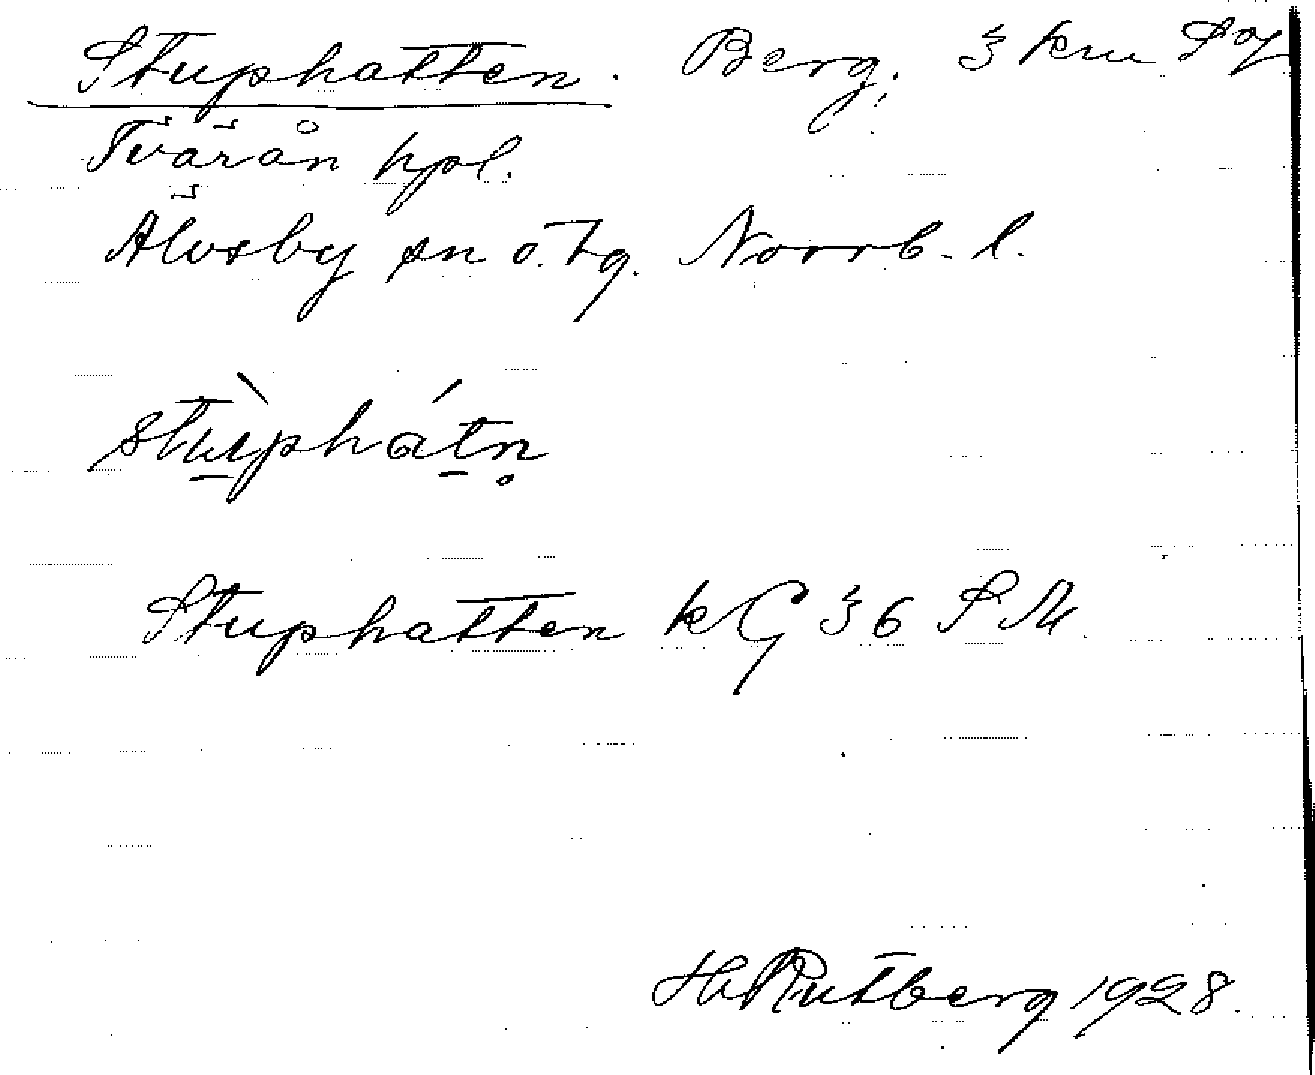 Stuphatten. Berg, 3 km S of
Tvärån hpl.
Älvsby sn o. tg. Norrb. l.
stùphátn̥
Stuphatten kG 36 SM
H. Rutberg 1928.